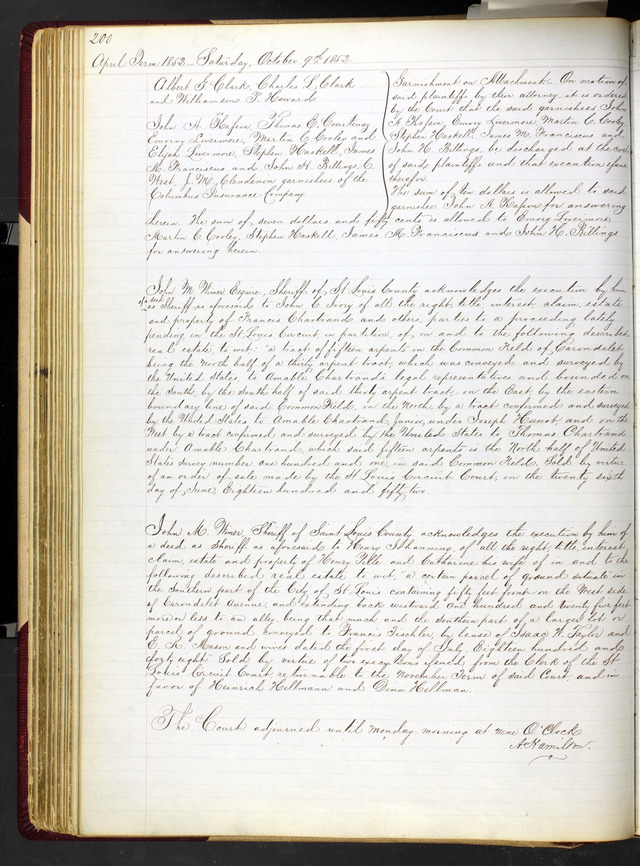 200
April Term 1852 - Saturday, October 9th 1852
Albert G. Clark, Charles L. Clark
and Williamson F. Howard
John A. Kasson, Thomas C. Courtenay
Emory Livermore, Martin C. Cooley and
Elijah Livermore, Stephen Haskell, James
M. Franciscus and John H. Billings, C.
West, J. M. Clendenin garnishees of the
Columbus Insurance Company
Garnishment on Attachment. On motion of
said plaintiffs by their attorney, it is ordered
by the Court that the said garnishees John
A. Kasson, Emory Livermore, Martin C. Cooley
Stephen Haskell, James M. Franciscus and
John H. Billings, be discharged at the cost
of said plaintiffs and that execution issue
therefor.
The sum of ten dollars is allowed to said
garnishee John A. Kasson for answering
herein. The sum of seven dollars and fifty cents is allowed to Emory Livermore
Martin C. Cooley, Stephen Haskell, James M. Franciscus and John H. Billings
for answering herein.
John M. Wimer Esquire, Sheriff of St. Louis County acknowledges the execution by him
of a deed as Sheriff as aforesaid to John C. Ivory of all the right, title, interest, claim, estate
and property of Francis Chartrand and others, parties to a proceeding lately
pending in the St. Louis Circuit in partition of, in and to the following described
real estate, to wit, "a tract of fifteen arpents in the Common Field of Carondelet
being the North half of a thirty arpent tract, which was conveyed and surveyed by
the United States to Amable Chartrand's legal representatives and bounded on
the South, by the South half of said thirty arpent tract, on the East by the eastern
boundary line of said Common Field, on the North, by a tract confirmed and surveyed
by the United States to Amable Chartrand, junior, under Joseph Hunot, and on the
West by a tract confirmed and surveyed by the United States to Thomas Chartrand
under Amable Chartrand, which said fifteen arpents is the North half of United
States survey number one hundred and one, in said Common Field. Sold by virtue
of an order of sale made by the St. Louis Circuit Court, on the twenty sixth
day of June, Eighteen hundred and fifty two.
John M. Wimer, Sheriff of Saint Louis County acknowledges the execution by him of
a deed as Sheriff as aforesaid to Henry S. Channing of all the right, title, interest
claim, estate and property of Henry Pelle and Catharine his wife of in and to the
following described real estate to wit, "a certain parcel of ground situate in
the Southern part of the City of St. Louis containing fifty feet front on the West side
of Carondelet Avenue, and extending back westward one hundred and twenty five feet
more or less to an alley, being that much and the southern part of a larger lot or
parcel of ground conveyed to Francis Tischler by lease of Isaac W. Taylor and
E. R. Mason and wives dated the first day of July, Eighteen hundred and
forty eight. Sold by virtue of two executions issued from the Clerk of the St.
Louis Circuit Court, returnable to the November Term of said Court, and in
favor of Heinrich Hellmann and Dina Hellman.
The Court adjourned until Monday morning at nine O'Clock
A. Hamilton.